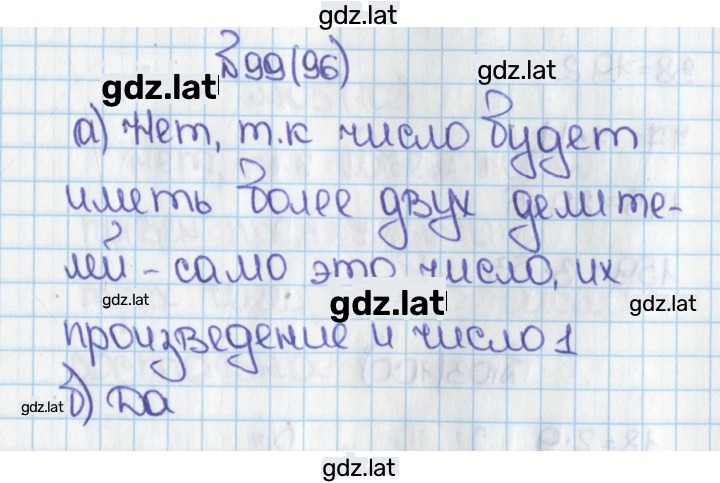 gdz.lat
№99(96)
gdz.lat
gdz.lat
а) Нет, т.к число будет
иметь более двух делите-
лей - само это число, их
gdz.lat
gdz.lat
gdz.lat
произведение и число 1
gdz.lat
б) Да
gdz.lat